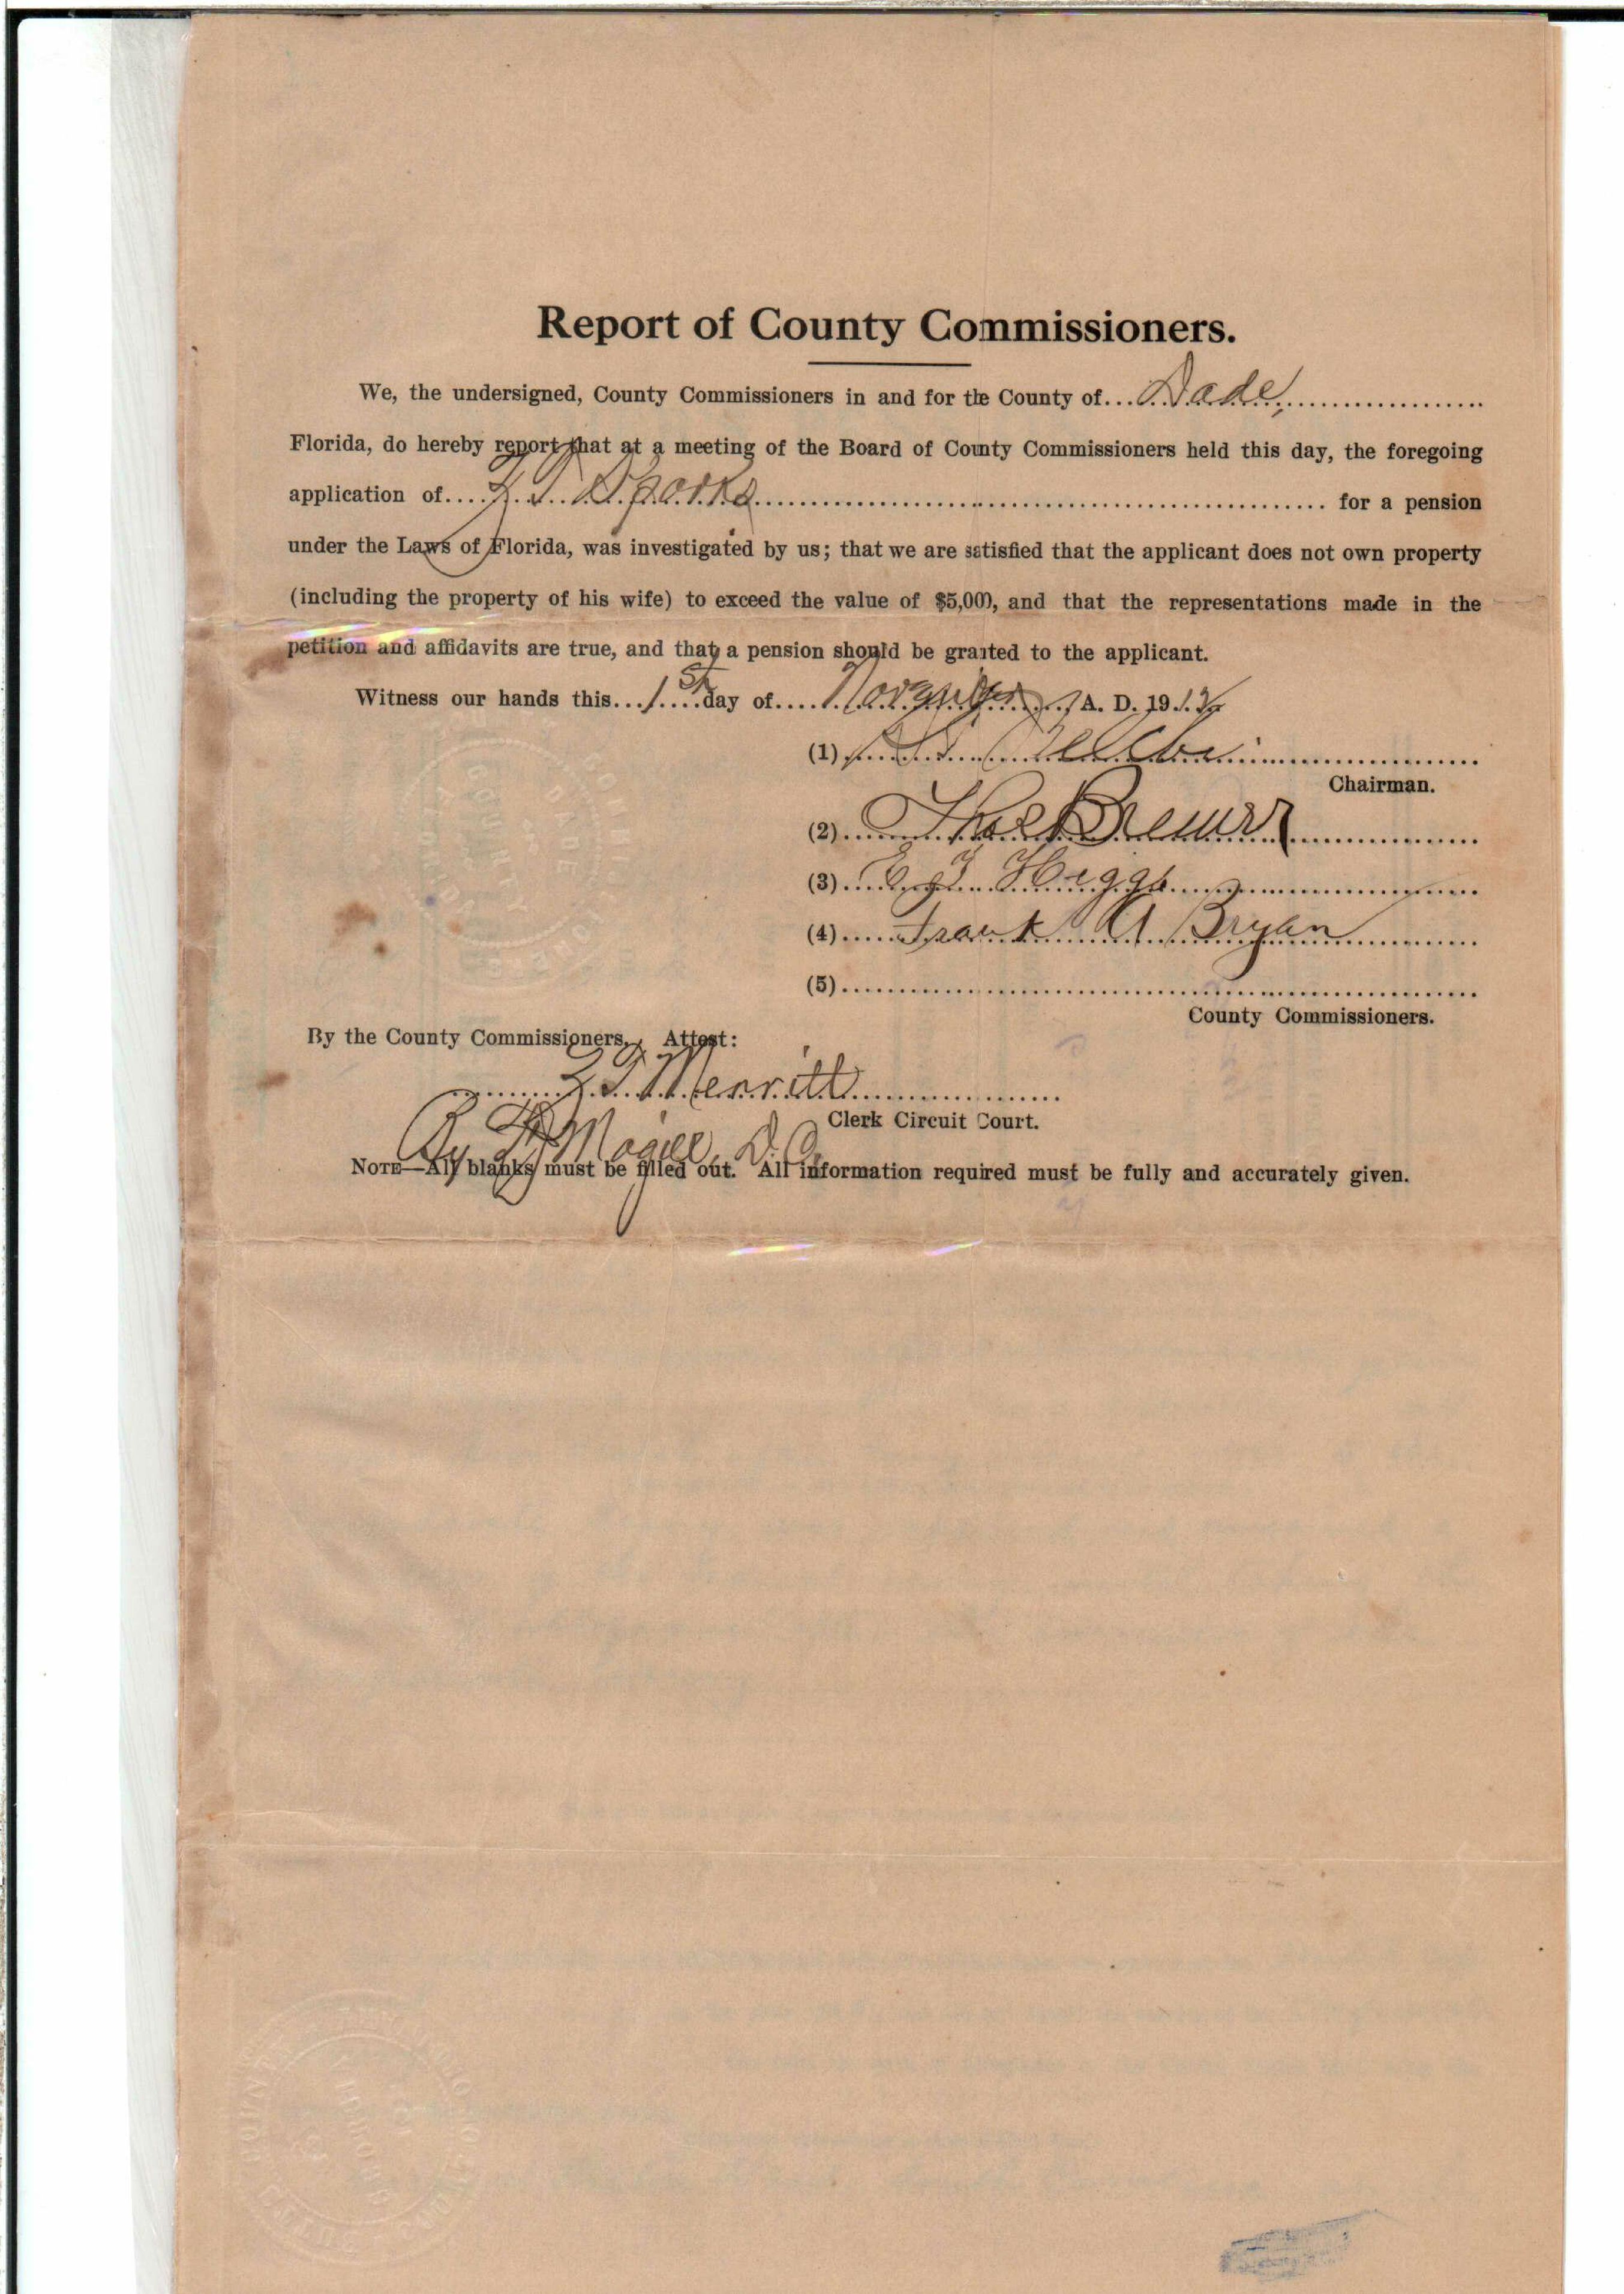 Report of County Commissioners.
We, the undersigned, County Commissioners in and for the County of... Dade,
Florida, do hereby report that at a meeting of the Board of County Commissioners held this day, the foregoing
application of.... Sparks for a pension
under the Laws of Florida, was investigated by us; that we are satisfied that the applicant does not own property
(including the property of his wife) to exceed the value of $5,000, and that the representations made in the
petition and affidavits are true, and that a pension should be granted to the applicant.
Witness our hands this...1st day of.... November A. D. 191
(1)
Chairman.
(2) Thos Brewer
(3) Higgs
(4) Frank A Bryan
(5)
County Commissioners.
By the County Commissioners, Attest:
Z. T. Merritt
Clerk Circuit Court.
By Magill, D. C.
NOTE—All blanks must be filled out. All information required must be fully and accurately given.